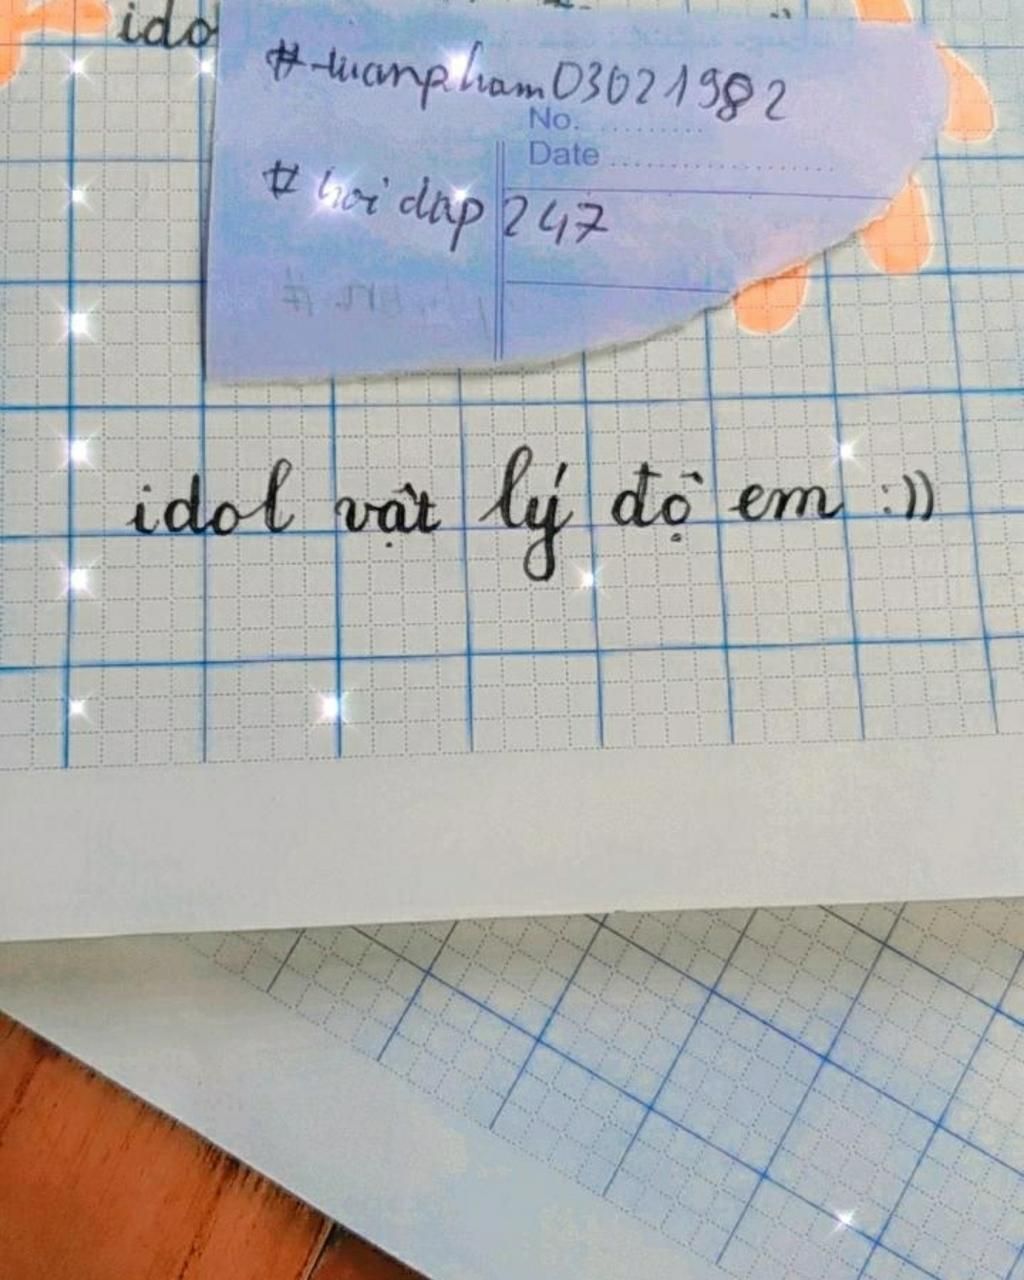 ido
#tuanpham03021982
No. ...........
Date ......................
# hoi dap 247
idol vật lý độ em :))